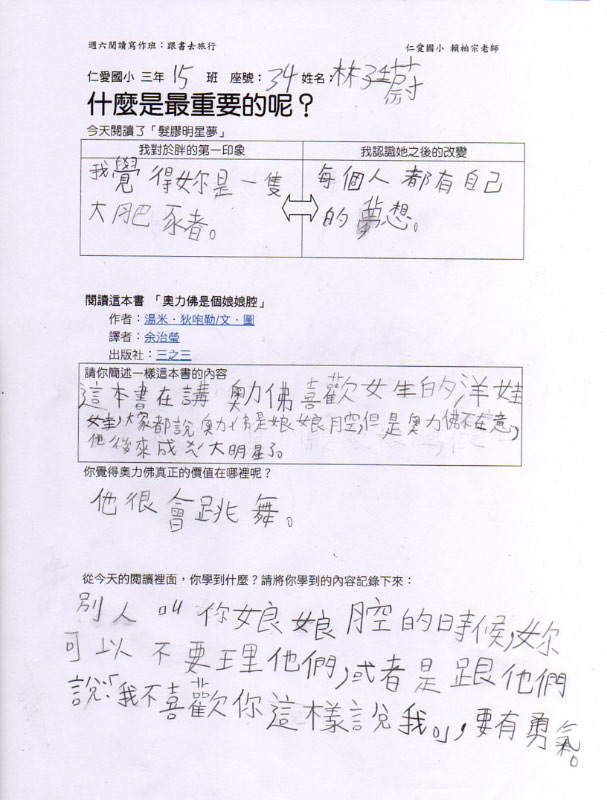 週六閱讀寫作班：跟書去旅行 仁愛國小 賴柏宗老師
仁愛國小 三年 15 班 座號：34 姓名：林子蔚
什麼是最重要的呢？
今天閱讀了「髮膠明星夢」
我對於胖的第一印象 我認識她之後的改變
我覺得妳是一隻 每個人都有自己
大肥豬。 的夢想。
閱讀這本書 「奧力佛是個娘娘腔」
作者：湯米．狄咆勒/文．圖
譯者：余治瑩
出版社：三之三
請你簡述一樣這本書的內容
這本書在講奧力佛喜歡女生的洋娃
娃，大家都說奧力佛是娘娘腔，但是奧力佛不在意，
他後來成為大明星了。
你覺得奧力佛真正的價值在哪裡呢？
他很會跳舞。
從今天的閱讀裡面，你學到什麼？請將你學到的內容記錄下來：
別人叫你娘娘腔的時候，妳
可以不要理他們，或者是跟他們
說：「我不喜歡你這樣說我。」，要有勇氣。